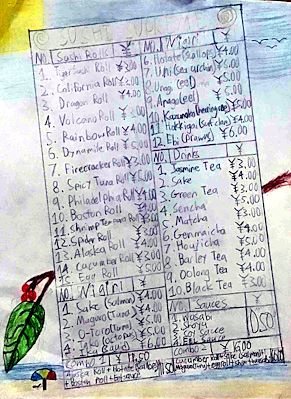 SUSHI
No. Sushi Rolls ¥
1. Tiger Sushi Roll ¥3.00
2. California Roll ¥3.00
3. Dragon Roll ¥4.00
4. Volcano Roll ¥4.00
5. Rainbow Roll ¥4.00
6. Dynamite Roll ¥5.00
7. Firecracker Roll ¥3.00
8. Spicy Tuna Roll ¥5.00
9. Philadelphia Roll ¥4.00
10. Boston Roll ¥4.00
11. Shrimp Tempura Roll
12. Spider Roll
13. Alaska Roll ¥4.00
14. Cucumber Roll ¥3.00
15. Egg Roll ¥5.00
No. Nigiri ¥
1. Sake (Salmon) ¥4.00
2. Maguro (Tuna) ¥4.00
3. O-Toro (Tuna) ¥5.00
4. Tako (octopus) ¥5.00
5. Ika
Combo 1 ¥
Roll + Hotate
+ Boston roll +
No. Nigiri ¥
6. Hotate (scallops) ¥4.00
7. Uni (sea urchin) ¥5.00
8. Unagi (eel)
9. Anago (eel) ¥5.00
10. Kazunoko (herring roe) ¥5.00
11. Hokkigai (surf clam) ¥4.00
12. Ebi (Prawns) ¥6.00
No. Drinks ¥
1. Jasmine Tea ¥3.00
2. Sake ¥4.00
3. Green Tea ¥5.00
4. Sencha ¥3.00
5. Matcha ¥5.00
6. Genmaicha ¥4.00
7. Houjicha ¥5.00
8. Barley Tea ¥4.00
9. Oolong Tea ¥4.00
10. Black Tea ¥3.00
No. Sauces ¥
1. Wasabi
2. Shoyu
3. Soy Sauce
4. Eel Sauce
0.50
Combo 2 ¥16.00
Cucumber roll + Sake (salmon) +